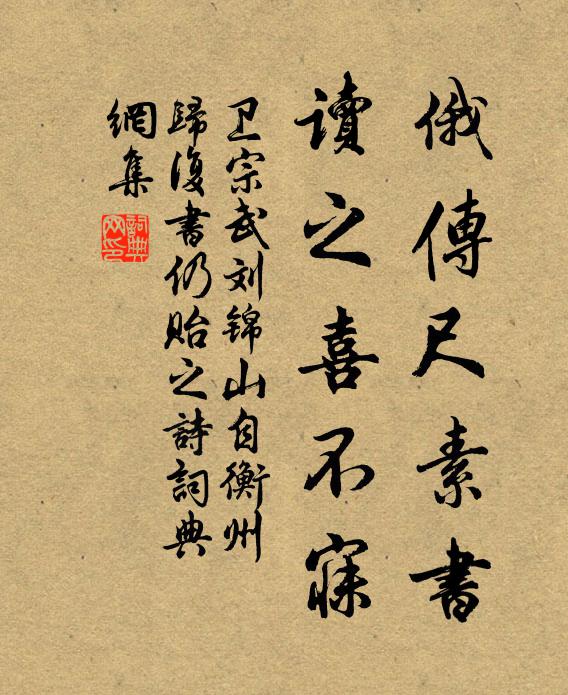 俄傳尺素書
讀之喜不寐
卫宗武刘锦山自衡州
歸復書仍贻之詩詞典
網集
詞典
网印